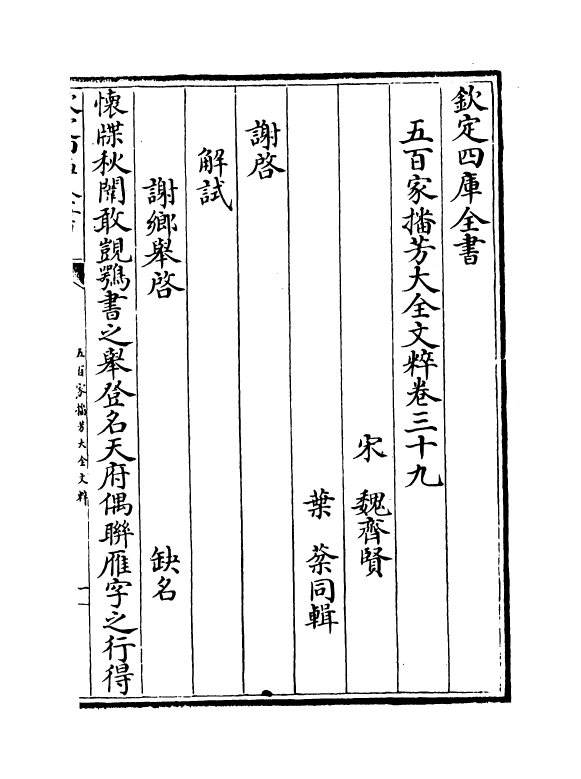 欽定四庫全書
五百家播芳大全文粹卷三十九
宋　魏齊賢
葉　棻同輯
謝啓
解試
謝鄉舉啓　缺名
懷牒秋闈敢覬鶚書之舉登名天府偶聯雁字之行得
五百家播芳大全文粹
一